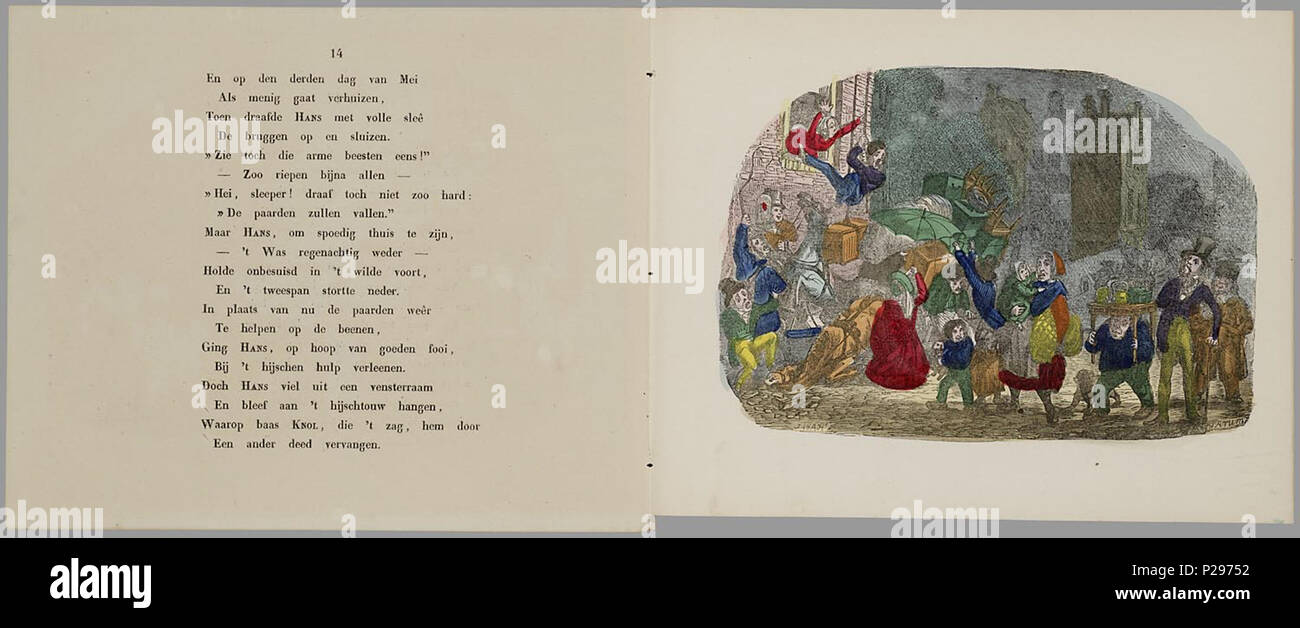 14
En op den derden dag van Mei
Als menig gaat verhuizen,
Toen draafde HANS met volle sleê
De bruggen op en sluizen.
» Zie toch die arme beesten eens!"
— Zoo riepen bijna allen —
» Hei, sleeper! draaf toch niet zoo hard:
» De paarden zullen vallen."
Maar HANS, om spoedig thuis te zijn,
— 't Was regenachtig weder —
Holde onbesuisd in 't wilde voort,
En 't tweespan stortte neder.
In plaats van nu de paarden weêr
Te helpen op de beenen,
Ging HANS, op hoop van goeden fooi,
Bij 't hijschen hulp verleenen.
Doch HANS viel uit een vensterraam
En bleef aan 't hijschtouw hangen,
Waarop baas KNOL, die 't zag, hem door
Een ander deed vervangen.
alamy
Image ID: P29752
www.alamy.com